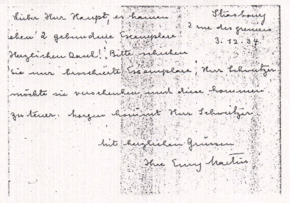 Lieber Herr Haupt, es kamen
Strasbourg
eben 2 gebundene Exemplare
2 rue des greniers
3.12.34
Herzlichen Dank! Bitte schicken
Sie nur broschierte Exemplare! Herr Schweitzer
möchte sie verschenken und diese kommen
zu teuer. Morgen kommt Herr Schweitzer.
Mit herzlichen Grüssen
Ihre Emmy Martin